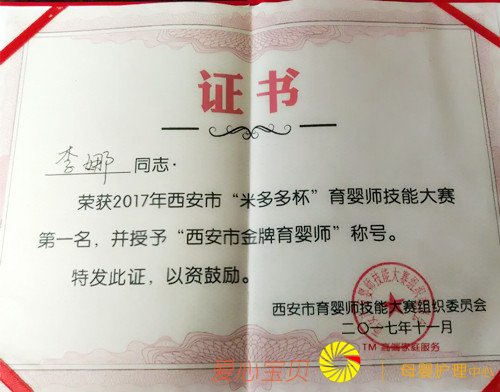 证书
李娜 同志·
荣获2017年西安市“米多多杯”育婴师技能大赛
第一名，并授予“西安市金牌育婴师”称号。
特发此证，以资鼓励。
西安市育婴师技能大赛组织委员会
二〇一七年十一月
TM 高端家庭服务
爱心宝贝
母婴护理中心